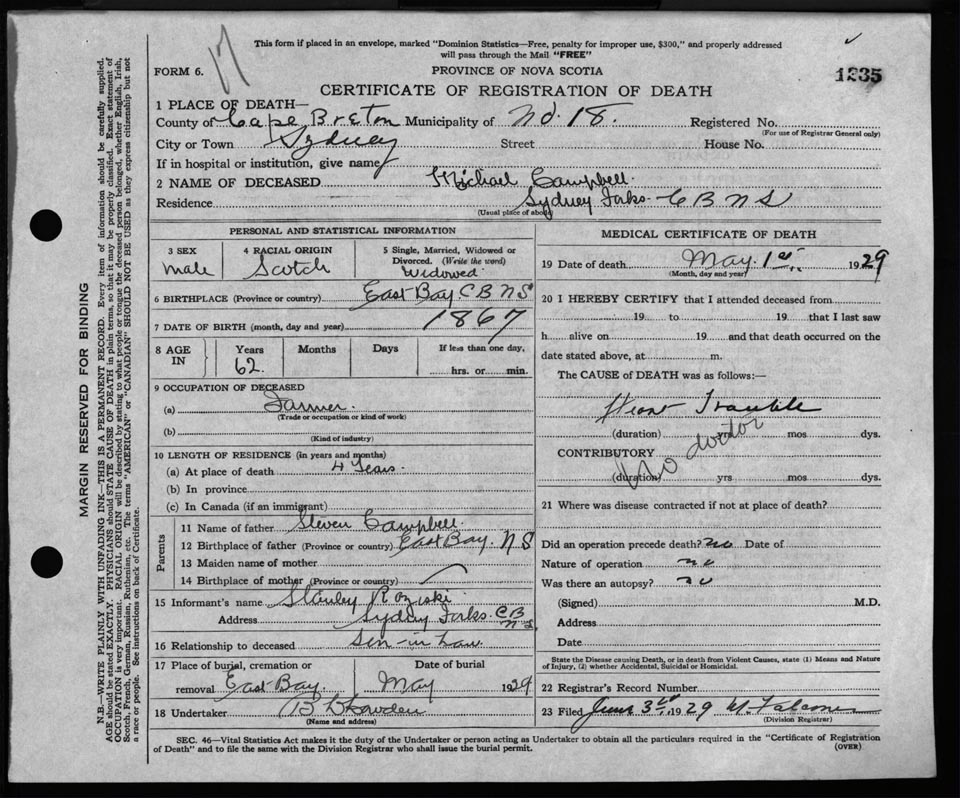 17
This form if placed in an envelope, marked "Dominion Statistics—Free, penalty for improper use, $300," and properly addressed
will pass through the Mail "FREE"
FORM 6.
PROVINCE OF NOVA SCOTIA
1235
CERTIFICATE OF REGISTRATION OF DEATH
1 PLACE OF DEATH—
County of Cape Breton Municipality of No. 18. Registered No.
(For use of Registrar General only)
City or Town Sydney Street House No.
If in hospital or institution, give name
2 NAME OF DECEASED Michael Campbell.
Residence Sydney Forks. C B N S
(Usual place of abode)
PERSONAL AND STATISTICAL INFORMATION
3 SEX 4 RACIAL ORIGIN 5 Single, Married, Widowed or
Divorced. (Write the word)
male Scotch Widowed
6 BIRTHPLACE (Province or country) East Bay. C B N S
7 DATE OF BIRTH (month, day and year) 1867
8 AGE IN Years Months Days If less than one day,
62. hrs. or min.
9 OCCUPATION OF DECEASED
(a) Farmer.
(Trade or occupation or kind of work)
(b)
(Kind of industry)
10 LENGTH OF RESIDENCE (in years and months)
(a) At place of death 4 Years.
(b) In province
(c) In Canada (if an immigrant)
Parents
11 Name of father Steven Campbell.
12 Birthplace of father (Province or country) East Bay. N S
13 Maiden name of mother
14 Birthplace of mother (Province or country)
15 Informant's name Stanley Roziski
Address Sydney Forks. C B
N S.
16 Relationship to deceased Son-in Law.
17 Place of burial, cremation or Date of burial
removal East Bay. May 1929
18 Undertaker
(Name and address)
MEDICAL CERTIFICATE OF DEATH
19 Date of death May. 1st. 1929
(Month, day and year)
20 I HEREBY CERTIFY that I attended deceased from
19 to 19 that I last saw
h alive on 19 and that death occurred on the
date stated above, at m.
The CAUSE of DEATH was as follows:—
Heart Trouble
(duration) yrs mos dys.
No doctor
CONTRIBUTORY
(duration) yrs mos dys.
21 Where was disease contracted if not at place of death?
Did an operation precede death? no Date of
Nature of operation no
Was there an autopsy? no
(Signed) M.D.
Address
Date
State the Disease causing Death, or in death from Violent Causes, state (1) Means and Nature
of Injury, (2) whether Accidental, Suicidal or Homicidal.
22 Registrar's Record Number
23 Filed June 3rd 1929
(Division Registrar)
SEC. 46—Vital Statistics Act makes it the duty of the Undertaker or person acting as Undertaker to obtain all the particulars required in the "Certificate of Registration
of Death" and to file the same with the Division Registrar who shall issue the burial permit.
(OVER)
MARGIN RESERVED FOR BINDING
N.B.—WRITE PLAINLY WITH UNFADING INK—THIS IS A PERMANENT RECORD. Every item of information should be carefully supplied.
AGE should be stated EXACTLY. PHYSICIANS should STATE CAUSE OF DEATH in plain terms, so that it may be properly classified. Exact statement of
OCCUPATION is very important. RACIAL ORIGIN will be described by stating to what people or tongue the deceased person belonged, whether English, Irish,
Scotch, French, German, Russian, Ruthenian, etc. The terms "AMERICAN" or "CANADIAN" SHOULD NOT BE USED as they express citizenship but not
a race or people. See instructions on back of Certificate.